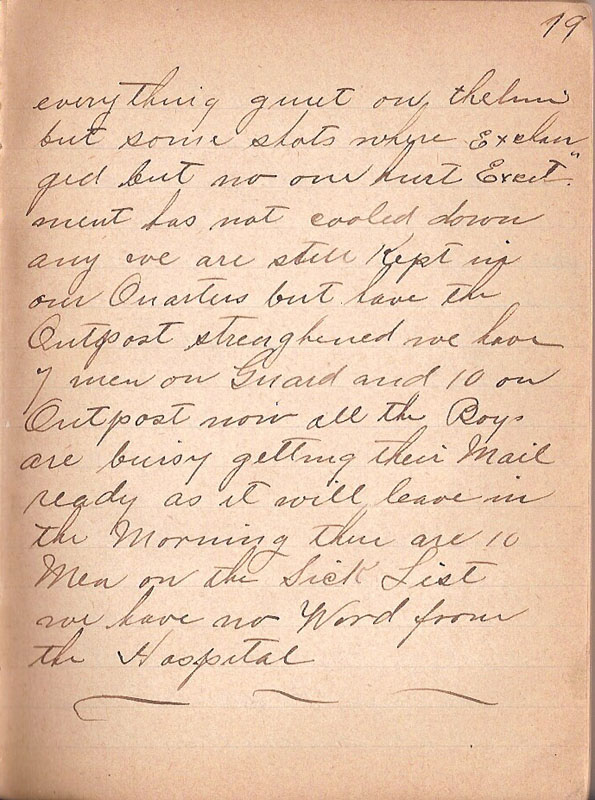 19
everything quiet on the line
but some shots where Exchan
ged but no one hurt Excit"
ment has not cooled down
any we are still Kept in
our Quarters but have the
Outpost strenghened we have
7 men on Guard and 10 on
Outpost now all the Boys
are buisy getting their Mail
ready as it will leave in
the Morning there are 10
Men on the Sick List
we have no Word from
the Hospital